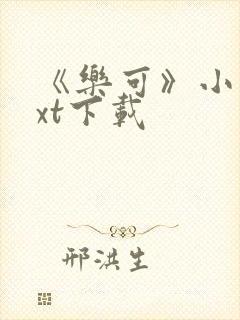 《樂可》小
xt下載
邢洪生